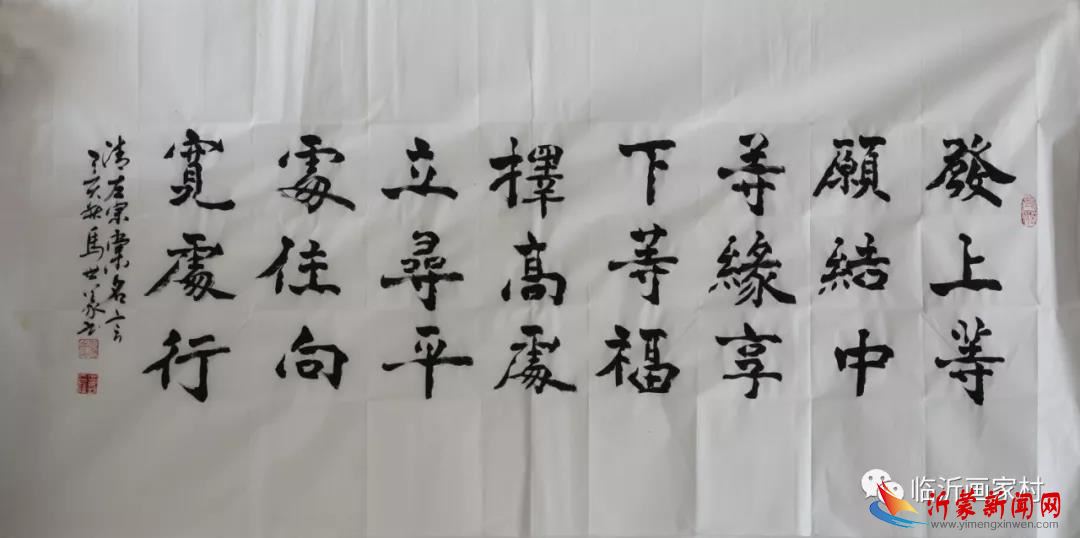 發上等
願結中
等緣享
下等福
擇高處
立尋平
處住向
寬處行
清左宗棠名言
亥秋馬世義书
临沂画家村
沂蒙新闻网
www.yimengxinwen.com